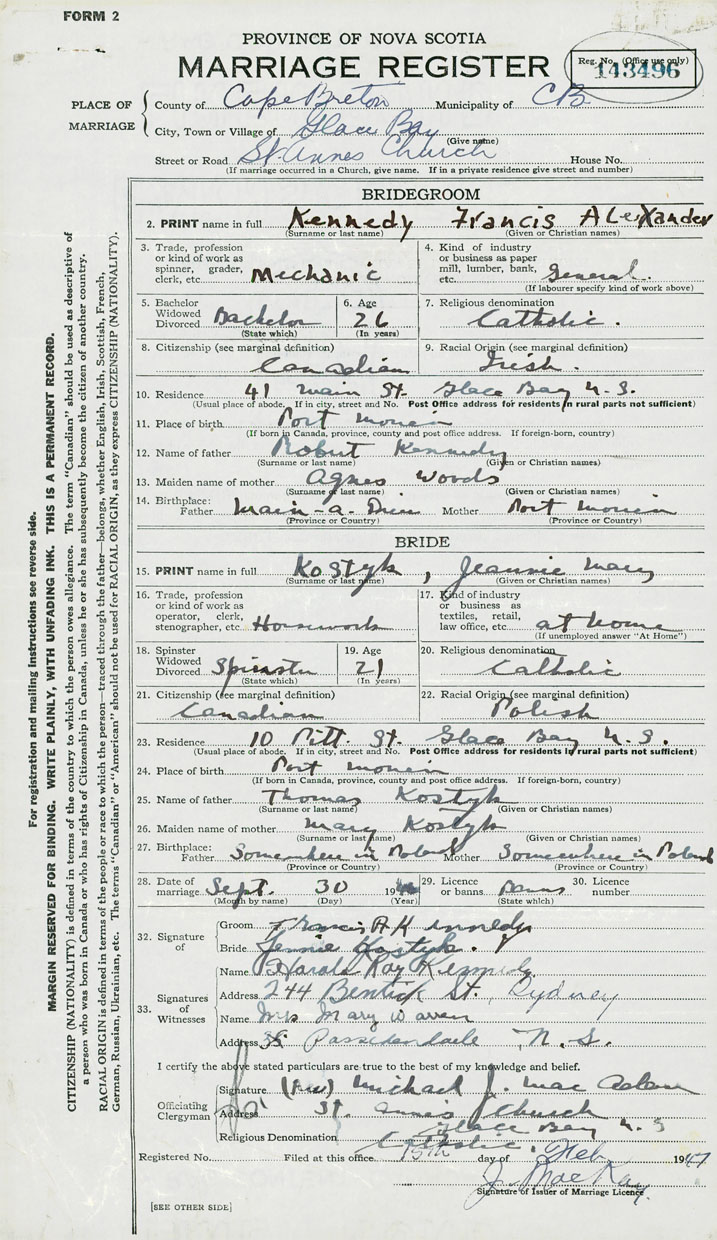 FORM 2
PROVINCE OF NOVA SCOTIA
MARRIAGE REGISTER
Reg. No. (Office use only)
143496
PLACE OF MARRIAGE
County of Cape Breton Municipality of CB
City, Town or Village of Glace Bay
(Give name)
Street or Road St. Annes Church House No.
(If marriage occurred in a Church, give name. If in a private residence give street and number)
BRIDEGROOM
2. PRINT name in full Kennedy Francis ALeXander
(Surname or last name) (Given or Christian names)
3. Trade, profession or kind of work as spinner, grader, clerk, etc. Mechanic
4. Kind of industry or business as paper mill, lumber, bank, etc. General.
(If labourer specify kind of work above)
5. Bachelor Widowed Divorced Bachelor
(State which)
6. Age 26
(In years)
7. Religious denomination Catholic.
8. Citizenship (see marginal definition) Canadian
9. Racial Origin (see marginal definition) Irish.
10. Residence 41 Main St. Glace Bay N. S.
(Usual place of abode. If in city, street and No. Post Office address for residents in rural parts not sufficient)
11. Place of birth Port Morien
(If born in Canada, province, county and post office address. If foreign-born, country)
12. Name of father Robert Kennedy
(Surname or last name) (Given or Christian names)
13. Maiden name of mother Agnes Woods
(Surname or last name) (Given or Christian names)
14. Birthplace: Father Main-a-Dieu Mother Port Morien
(Province or Country) (Province or Country)
BRIDE
15. PRINT name in full Kostyk, Jeannie Mary
(Surname or last name) (Given or Christian names)
16. Trade, profession or kind of work as operator, clerk, stenographer, etc. Housework
17. Kind of industry or business as textiles, retail, law office, etc. at home
(If unemployed answer "At Home")
18. Spinster Widowed Divorced Spinster
(State which)
19. Age 21
(In years)
20. Religious denomination Catholic
21. Citizenship (see marginal definition) Canadian
22. Racial Origin (see marginal definition) Polish
23. Residence 10 Pitt St. Glace Bay N. S.
(Usual place of abode. If in city, street and No. Post Office address for residents in rural parts not sufficient)
24. Place of birth Port Morien
(If born in Canada, province, county and post office address. If foreign-born, country)
25. Name of father Thomas Kostyk
(Surname or last name) (Given or Christian names)
26. Maiden name of mother Mary Kostyk
(Surname or last name) (Given or Christian names)
27. Birthplace: Father Somewhere in Poland Mother Somewhere in Poland
(Province or Country) (Province or Country)
28. Date of marriage Sept. 30 19
(Month by name) (Day) (Year)
29. Licence or banns Banns
(State which)
30. Licence number
32. Signature of
Groom Francis A Kennedy
Bride Jennie Kostyk.
33. Signatures of Witnesses
Name Harold Ray Kennedy
Address 244 Bentick St., Sydney
Name Mrs Mary Warren
Address 38 Passendaele N. S.
I certify the above stated particulars are true to the best of my knowledge and belief.
Officiating Clergyman
Signature (Rev) Michael J. Mac Adam
Address St. Annes Church
Glace Bay N. S
Religious Denomination Catholic.
Registered No. Filed at this office 15th day of Feb 1947
J. MacKay.
Signature of Issuer of Marriage Licence
[SEE OTHER SIDE]
For registration and mailing instructions see reverse side.
MARGIN RESERVED FOR BINDING. WRITE PLAINLY, WITH UNFADING INK. THIS IS A PERMANENT RECORD.
CITIZENSHIP (NATIONALITY) is defined in terms of the country to which the person owes allegiance. The term "Canadian" should be used as descriptive of
a person who was born in Canada or who has rights of Citizenship in Canada, unless he or she has subsequently become the citizen of another country.
RACIAL ORIGIN is defined in terms of the people or race to which the person—traced through the father—belongs, whether English, Irish, Scottish, French,
German, Russian, Ukrainian, etc. The terms "Canadian" or "American" should not be used for RACIAL ORIGIN, as they express CITIZENSHIP (NATIONALITY).